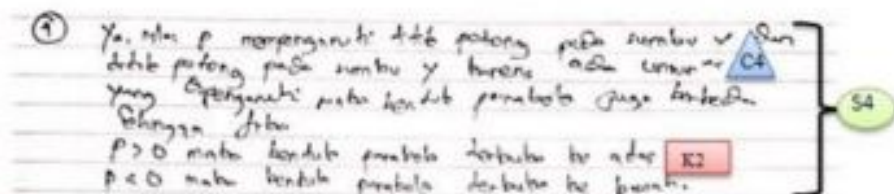 ④ Ya, nilai p mempengaruhi titik potong pada sumbu x dan
titik potong pada sumbu y karena ada unsur C4
yang dipengaruhi maka bentuk parabola juga berbeda
Sehingga jika
P > 0 maka bentuk parabola terbuka ke atas K2
P < 0 maka bentuk parabola terbuka ke bawah.
S4